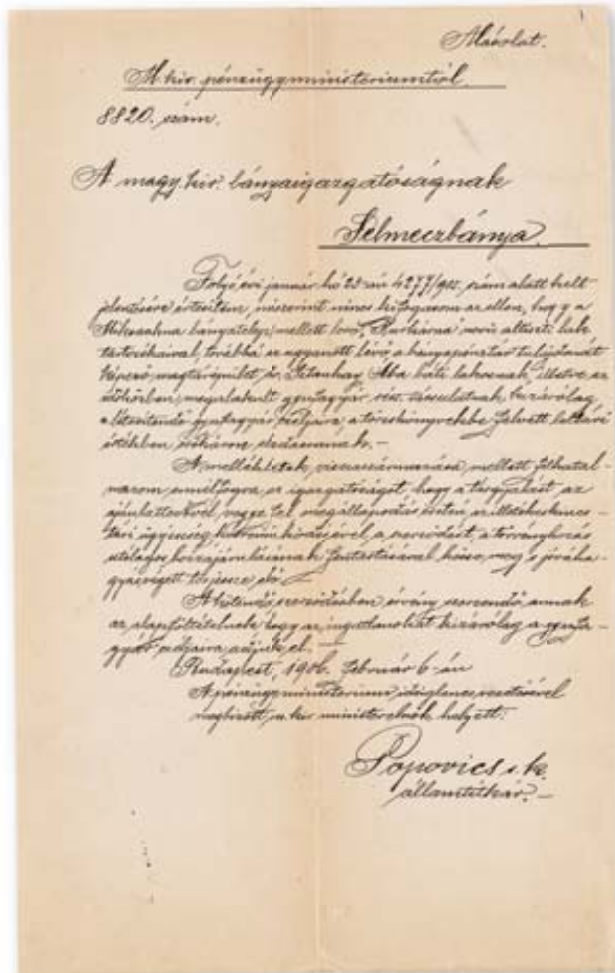 Másolat.
M. kir. pénzügyministeriumtól.
8820. szám.
A magy. kir. bányaigazgatóságnak
Selmeczbánya.
Folyó évi január hó 23-án 4277/905. szám alatt kelt
jelentésére értesítem, miszerint nincs kifogásom az ellen, hogy a
bányatelep mellett levő, nevű altiszti lak
tartozékaival, továbbá az ugyanott lévő, a bányapénztár tulajdonát
képező magtárépület dr. Aba lakosnak illetve az
megalakult gyutagyár részv. társulatnak, kizárólag
a létesítendő gyutagyár czéljaira, a törzskönyvekbe felvett leltári
értékben eladassanak. –
A mellékletek visszaszármazása mellett felhatal-
mazom ennélfogva az igazgatóságot, hogy a tárgyalást az
ajánlattevővel vegye fel, megállapodás esetén az illetékes kincs-
tári ügyészség a szerződést, a törvényhozás
utólagos hozzájárulásának fentartásával kösse meg s jóváha-
gyás végett terjessze elő.
A kötendő szerződésben érvény szerzendő annak
az alapfeltételnek hogy az ingatlanokat kizárólag a gyuta-
gyár czéljaira adjuk el. –
Budapest, 1906. február 6-án
A pénzügyministerium ideiglenes vezetésével
megbízott, m. kir. ministerelnök helyett:
Popovics s. k.
államtitkár. –